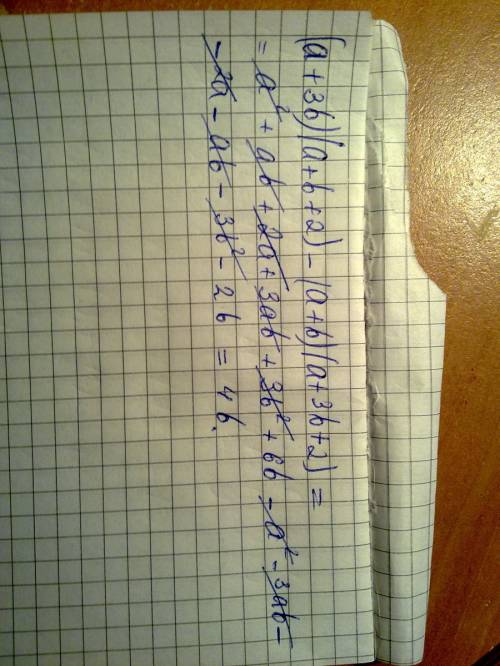 (a+3b)(a+b+2)-(a+b)(a+3b+2)=
=a²+ab+2a+3ab+3b²+6b-a²-3ab-
-2a-ab-3b²-2b=4b.